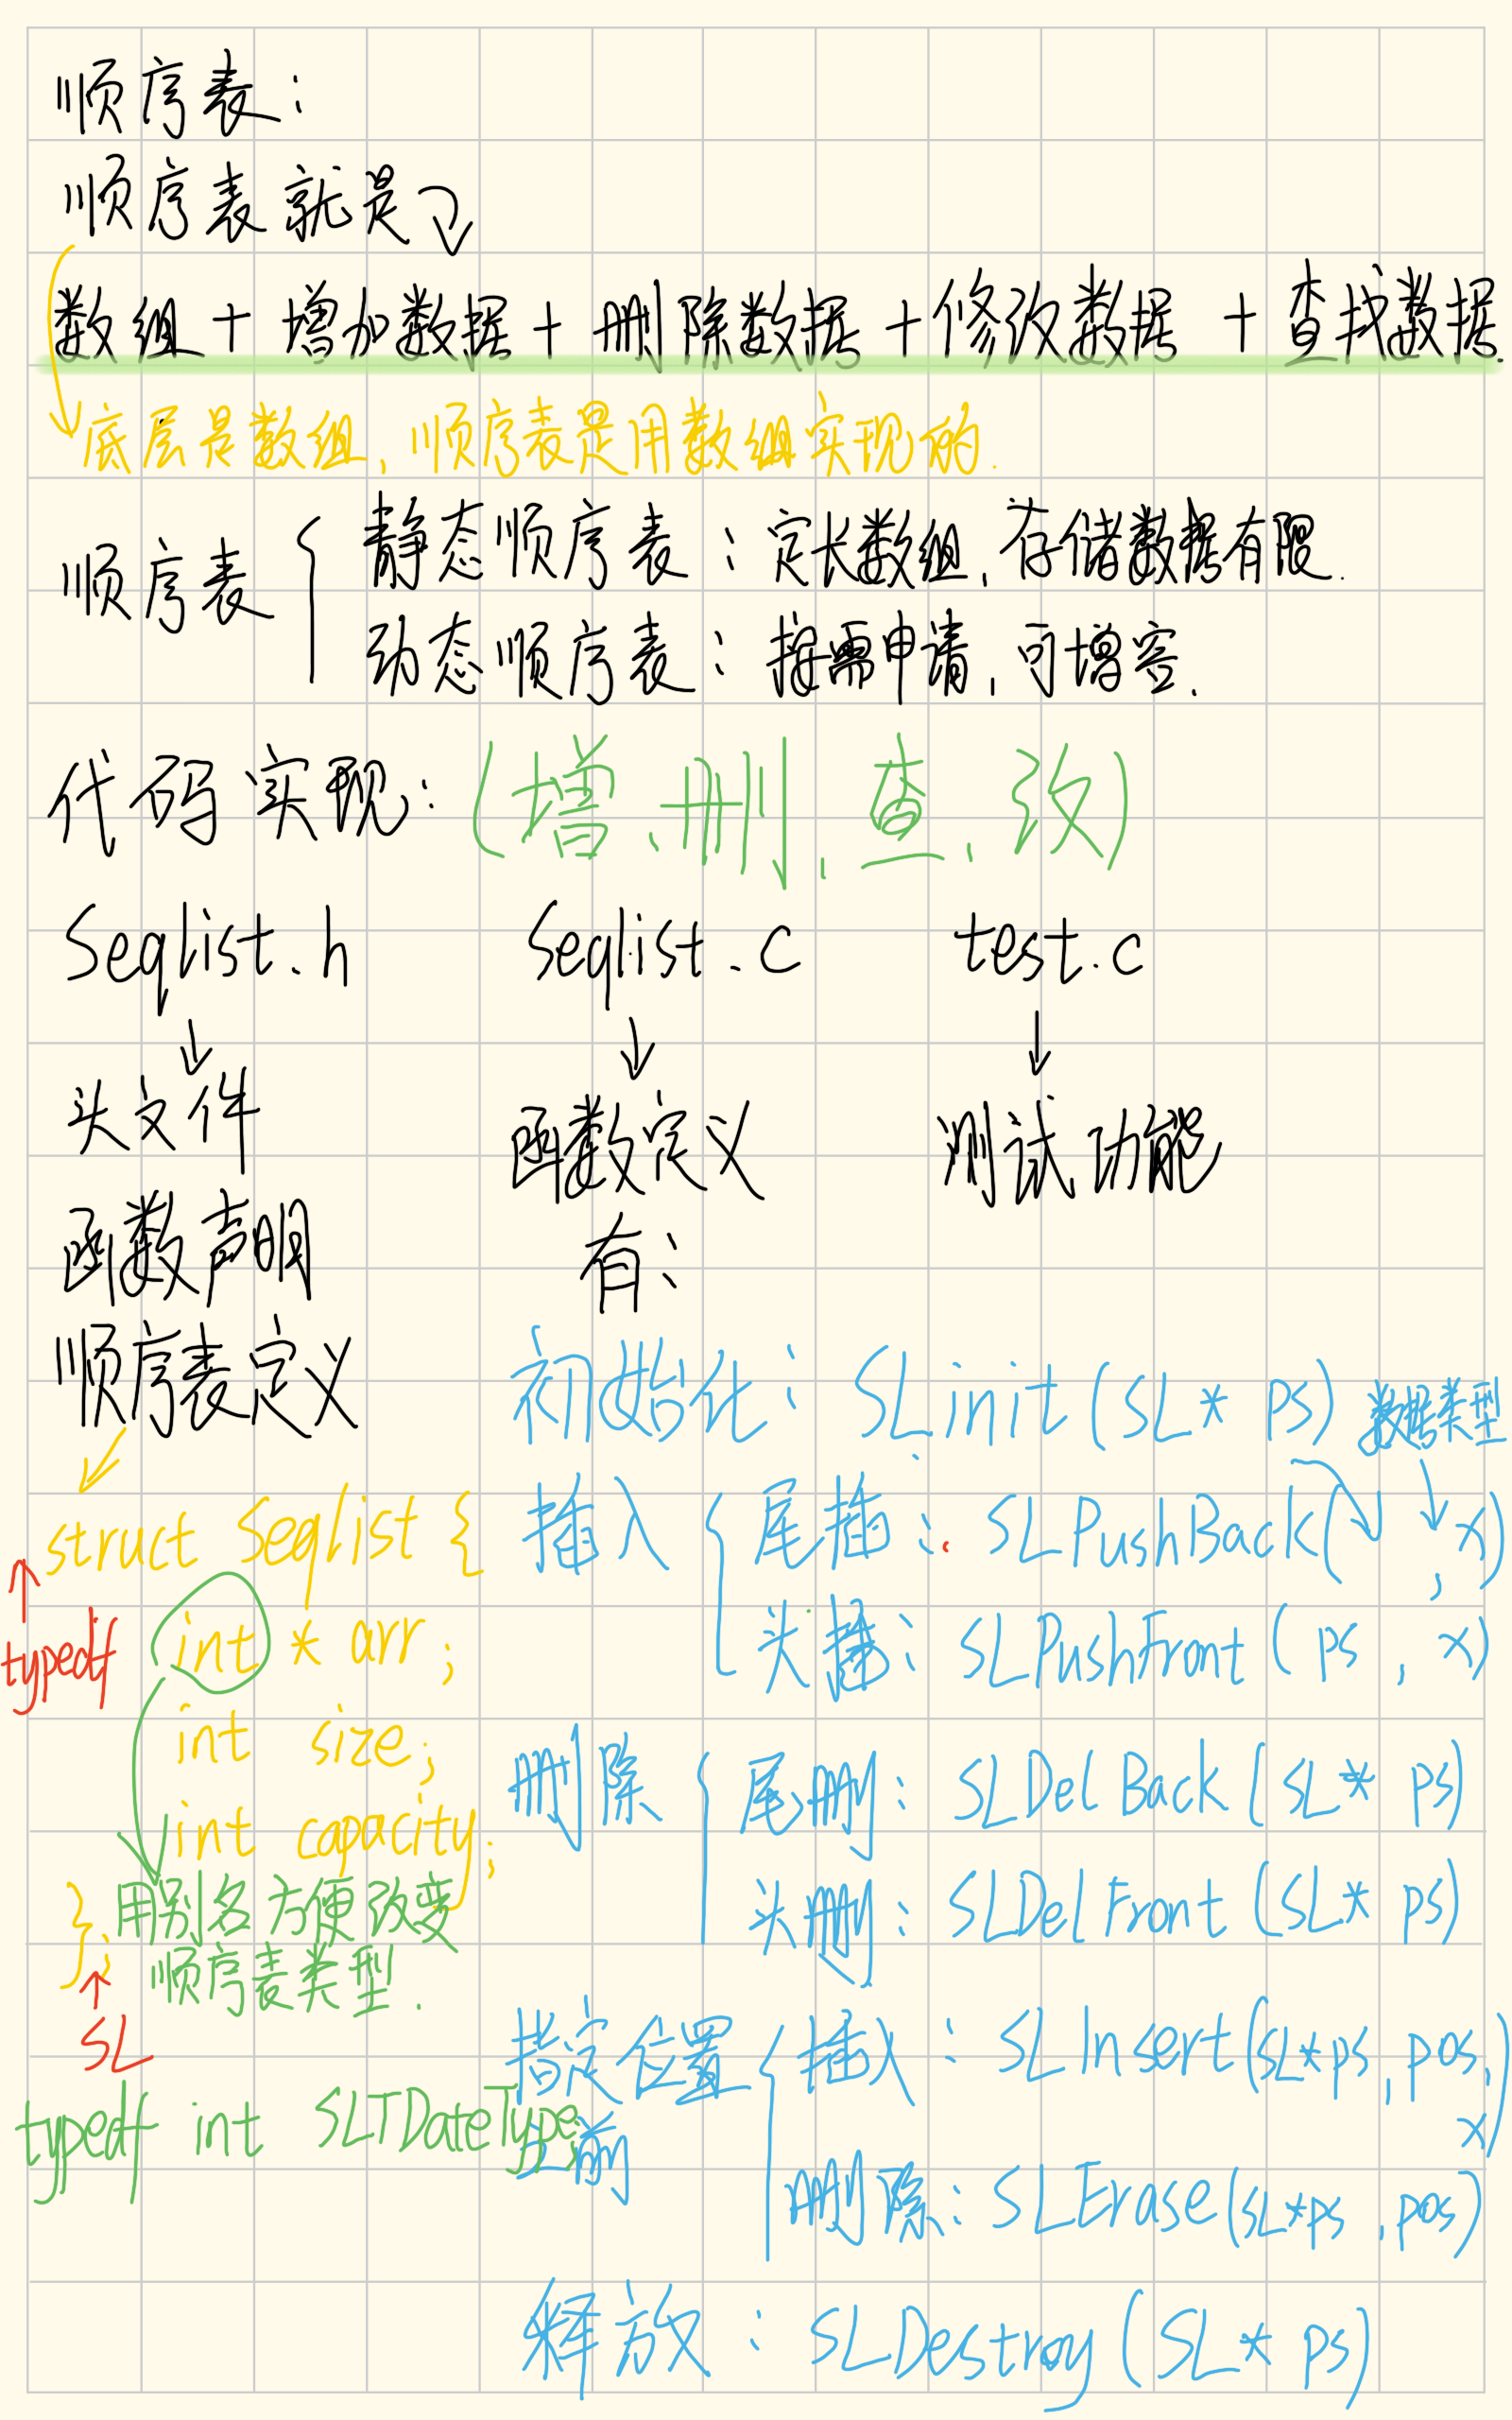 顺序表:
顺序表就是
数组+增加数据+删除数据+修改数据+查找数据.
底层是数组、顺序表是用数组实现的.
顺序表
静态顺序表:定长数组、存储数据有限.
动态顺序表:按需申请、可增容.
代码实现:(增、删、查、改)
Seqlist.h
头文件
函数声明
顺序表定义
struct Seqlist {
typedf
int * arr;
int size;
int capacity;
};
用别名方便改变
顺序表类型.
SL
typedf int SLTDateType;
Seqlist.c
函数定义
有:
初始化: SLinit(SL* ps)
数据类型
插入
尾插: SLPushBack( , x)
头插: SLPushFront(ps, x)
删除
尾删: SLDelBack(SL* ps)
头删: SLDelFront(SL* ps)
指定位置
之前
插入: SLInsert(SL*ps, pos,
x)
删除: SLErase(SL*ps, pos)
释放: SLDestroy(SL* ps)
test.c
测试功能